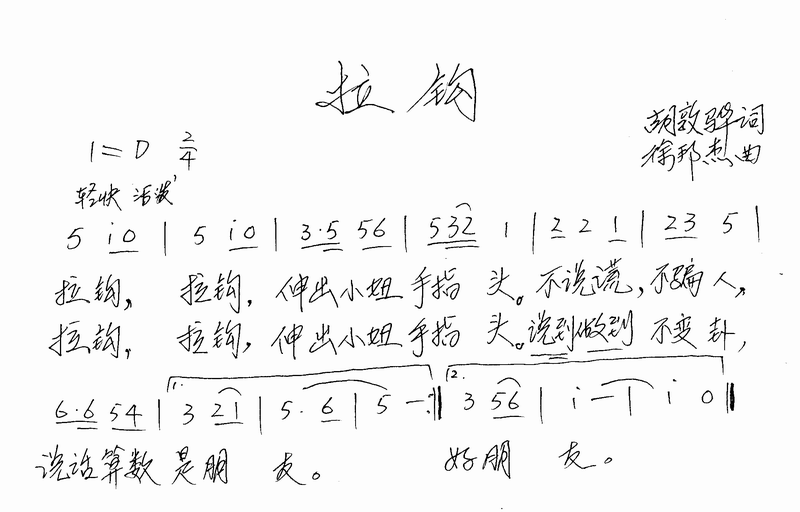 拉钩
胡敦骅词
1=D 2/4
徐邦杰曲
轻快 活泼
5 i0 | 5 i0 | 3·5 56 | 532 1 | 2 2 1 | 23 5 |
拉钩, 拉钩, 伸出小妞手指 头。不说谎,不骗人,
拉钩, 拉钩, 伸出小妞手指 头。说到做到 不变卦,
6·6 54 | 1. 3 21 | 5· 6 | 5 — :‖ 2. 3 56 | i — | i 0 ‖
说话算数是朋 友。 好朋 友。